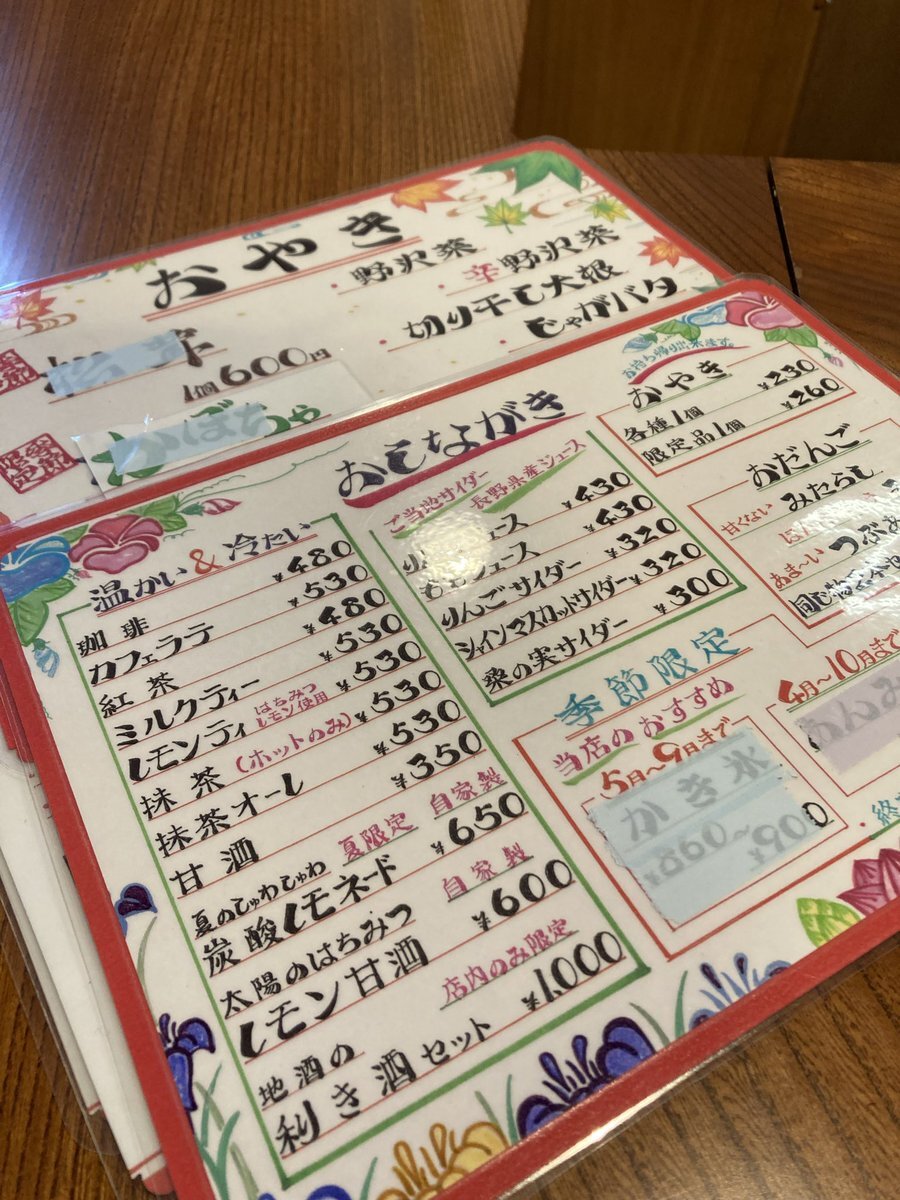 おやき
野沢菜
辛野沢菜
切り干し大根
じゃがバタ
1個600円
かぼちゃ
おしながき
温かい&冷たい
珈琲 ¥480
カフェラテ ¥530
紅茶 ¥480
ミルクティー ¥530
レモンティ はちみつレモン使用 ¥530
抹茶(ホットのみ) ¥530
抹茶オーレ ¥530
甘酒 ¥350
夏のしゅわしゅわ 夏限定 自家製
炭酸レモネード ¥650
太陽のはちみつ 自家製
レモン甘酒 ¥600
地酒の 店内のみ限定
利き酒セット ¥1,000
ご当地サイダー
長野県産ジュース
ジュース ¥430
ももジュース ¥430
りんごサイダー ¥320
シャインマスカットサイダー ¥320
桑の実サイダー ¥300
お持ち帰り出来ます。
おやき
各種1個 ¥230
限定品1個 ¥260
おだんご
甘くない みたらし
あま〜い つぶあ
季節限定
当店のおすすめ
5月〜9月まで
かき氷
¥860〜¥900
4月〜10月まで
あんみ